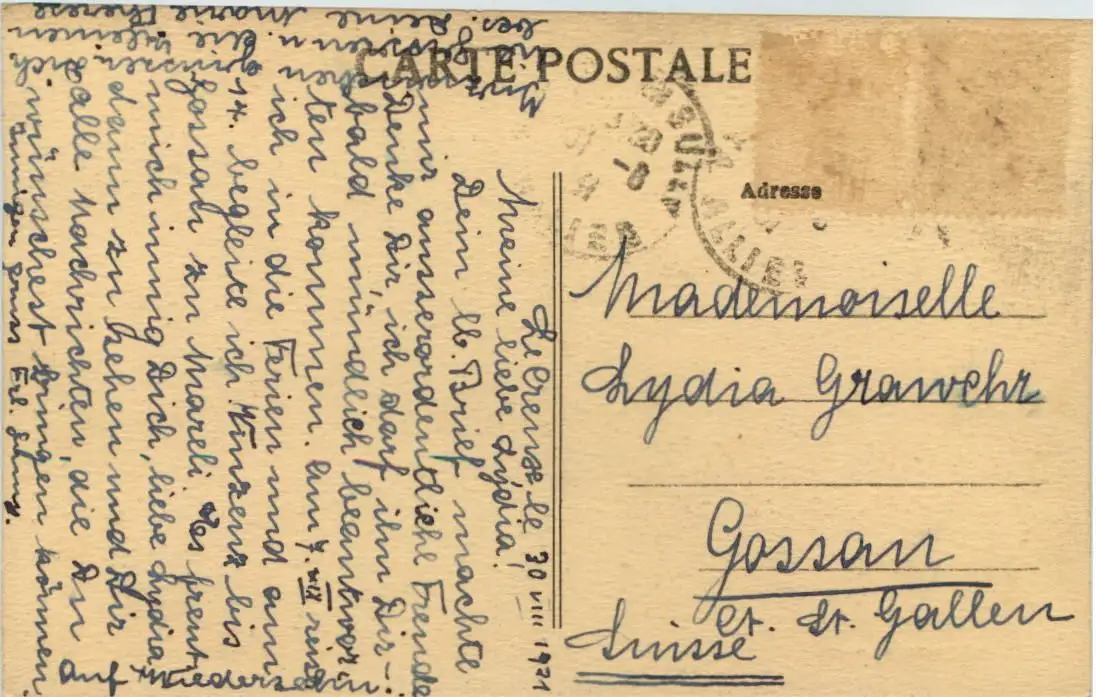 CARTE POSTALE
Adresse
Mademoiselle
Lydia Grawehr
Gossau
Ct. St. Gallen
Suisse
le 30 VIII 1921
Meine liebe Lydia!
Dein lb. Brief machte
mir ausserordentliche Freude
Denke Dir, ich darf ihn Dir
bald mündlich beantwor-
ten kommen. Am 7. VIII reise
ich in die Ferien und am
14. begleite ich Vinzenz bis
Gossau zu Mareli. Es freut
mich innig Dich, liebe Lydia
dann zu sehen und Dir
alle Nachrichten, die Du
wünschest bringen können.
Auf Wiedersehn!
grüssen Dich
die kleinen
Deine Marie Therese